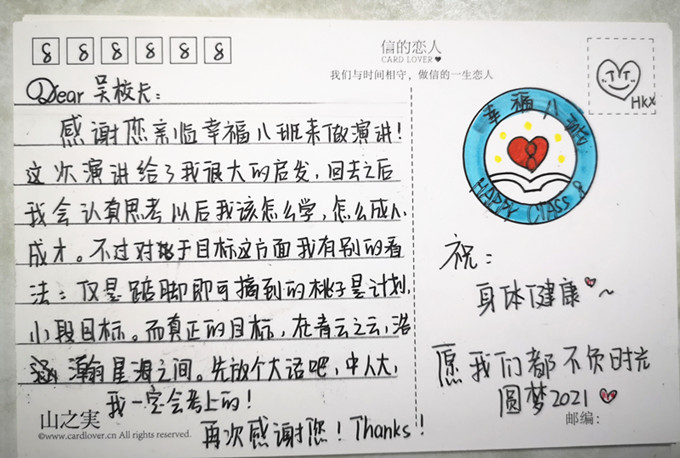 8 8 8 8 8 8
信的恋人
CARD LOVER♥
我们与时间相守，做信的一生恋人
HKX
Dear 吴校长：
感谢您亲临幸福八班来做演讲！
这次演讲给了我很大的启发，回去之后
我会认真思考以后我该怎么学，怎么成人，
成才。不过对于目标这方面我有别的看
法：仅是踮脚即可摘到的桃子是计划，
小段目标。而真正的目标，在青云之云，浩
瀚星海之间。先放个大话吧，中人大，
我一定会考上的！
再次感谢您！Thanks！
幸福八班
8
HAPPY CLASS 8
祝：
身体健康～
愿我们都不负时光
圆梦2021
山之实
©www.cardlover.cn All rights reserved.
邮编：